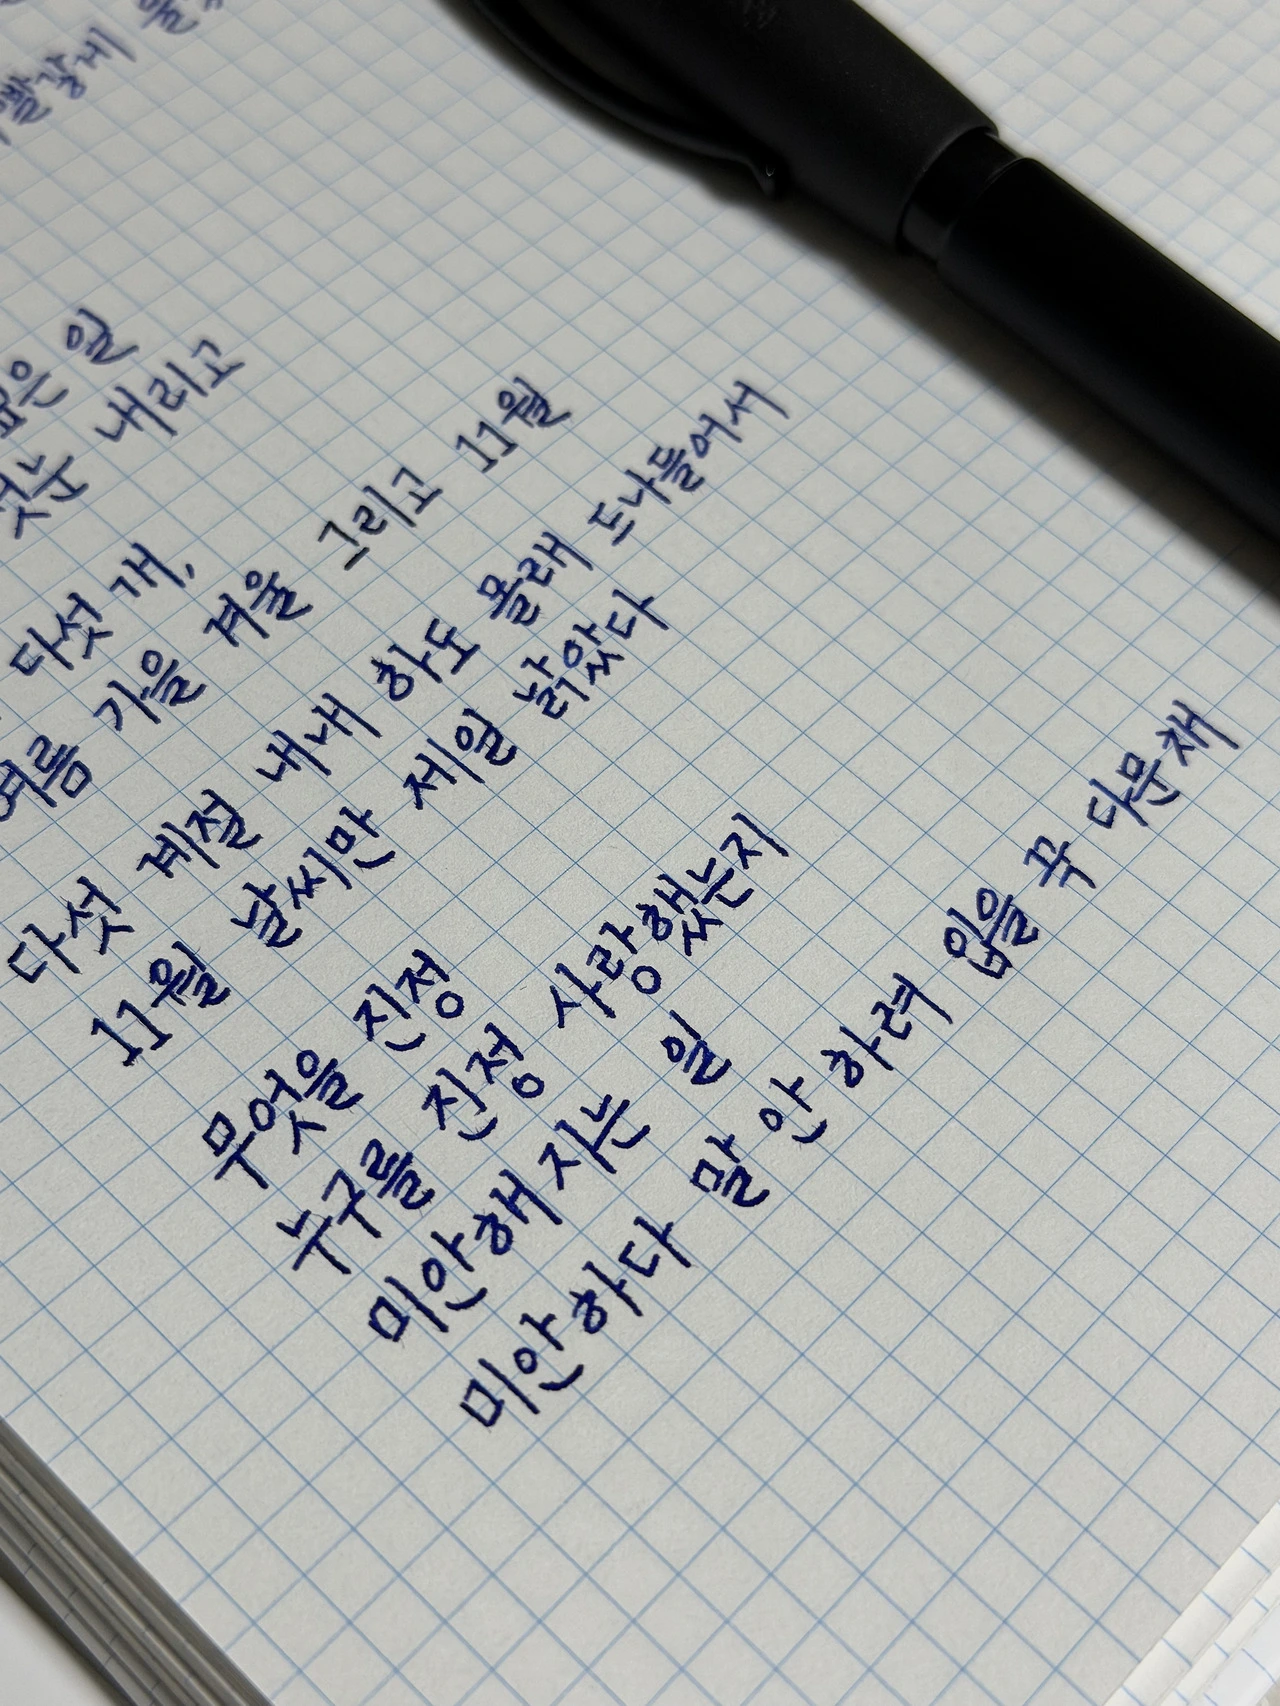 빨갛게
은 일
첫눈 내리고
다섯 개,
여름 가을 겨울 그리고 11월
다섯 계절 내내 하도 몰래 드나들어서
11월 날씨만 제일 낡았다
무엇을 진정
누구를 진정 사랑했는지
미안해지는 일
미안하다 말 안 하려 입을 꾹 다문 채